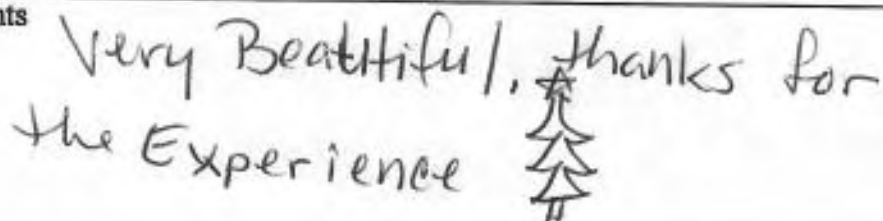 nts
Very Beatttiful, thanks for
the Experience